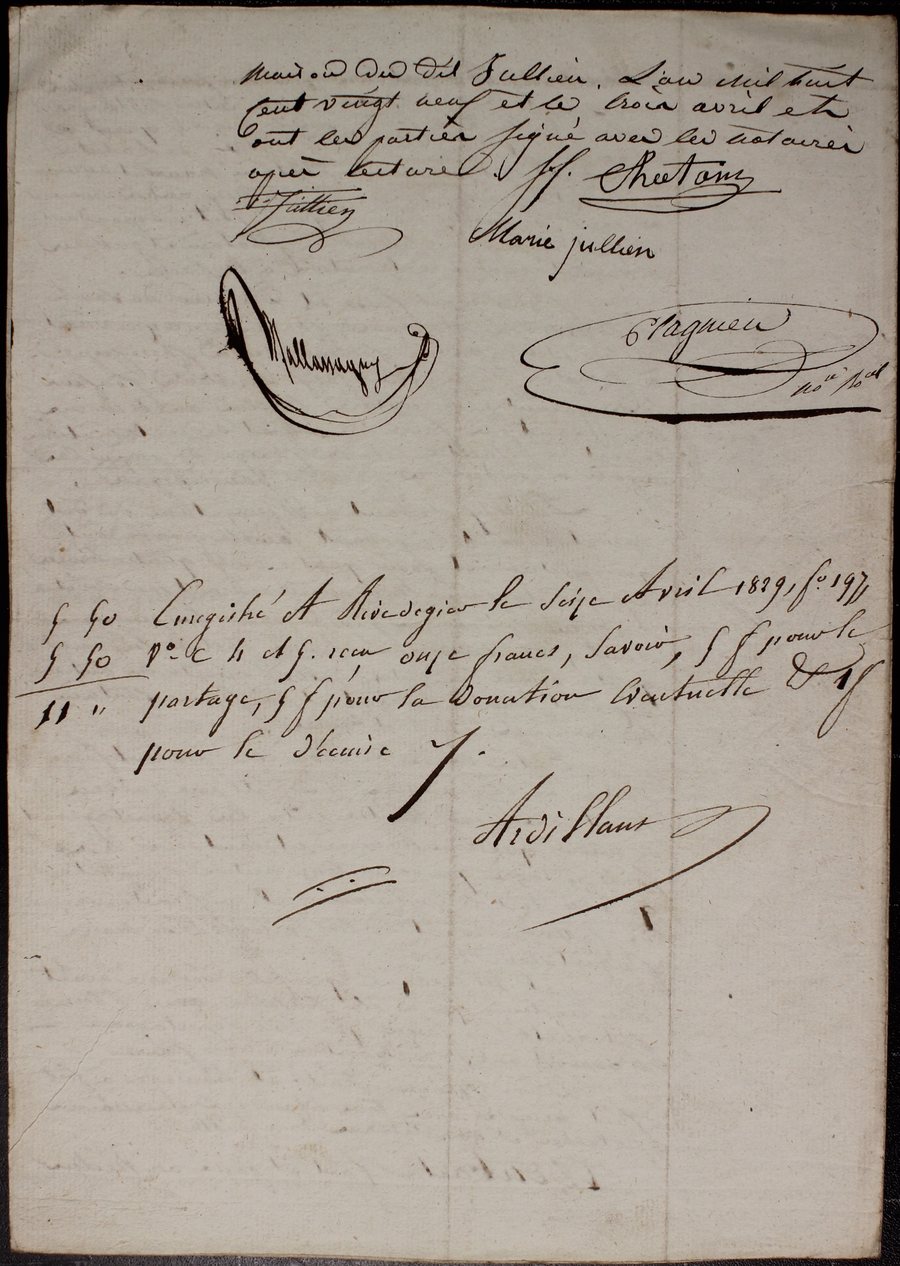 maison du dit Jullien. L'an mil huit
cent vingt neuf et le trois avril et
ont les parties signé avec les notaires
après lecture. ff. Chatain
Jullien
Marie jullien
Plagnieu
no.re Roal
5 50 Enregistré A Rivedegier le Seize Avril 1829, fo. 197,
5 50 Vo. C 4 et 5. reçu onze francs, Savoir, 5 f pour le
11 " partage, 5 f pour la Donation Eventuelle & 1 f
pour le décime